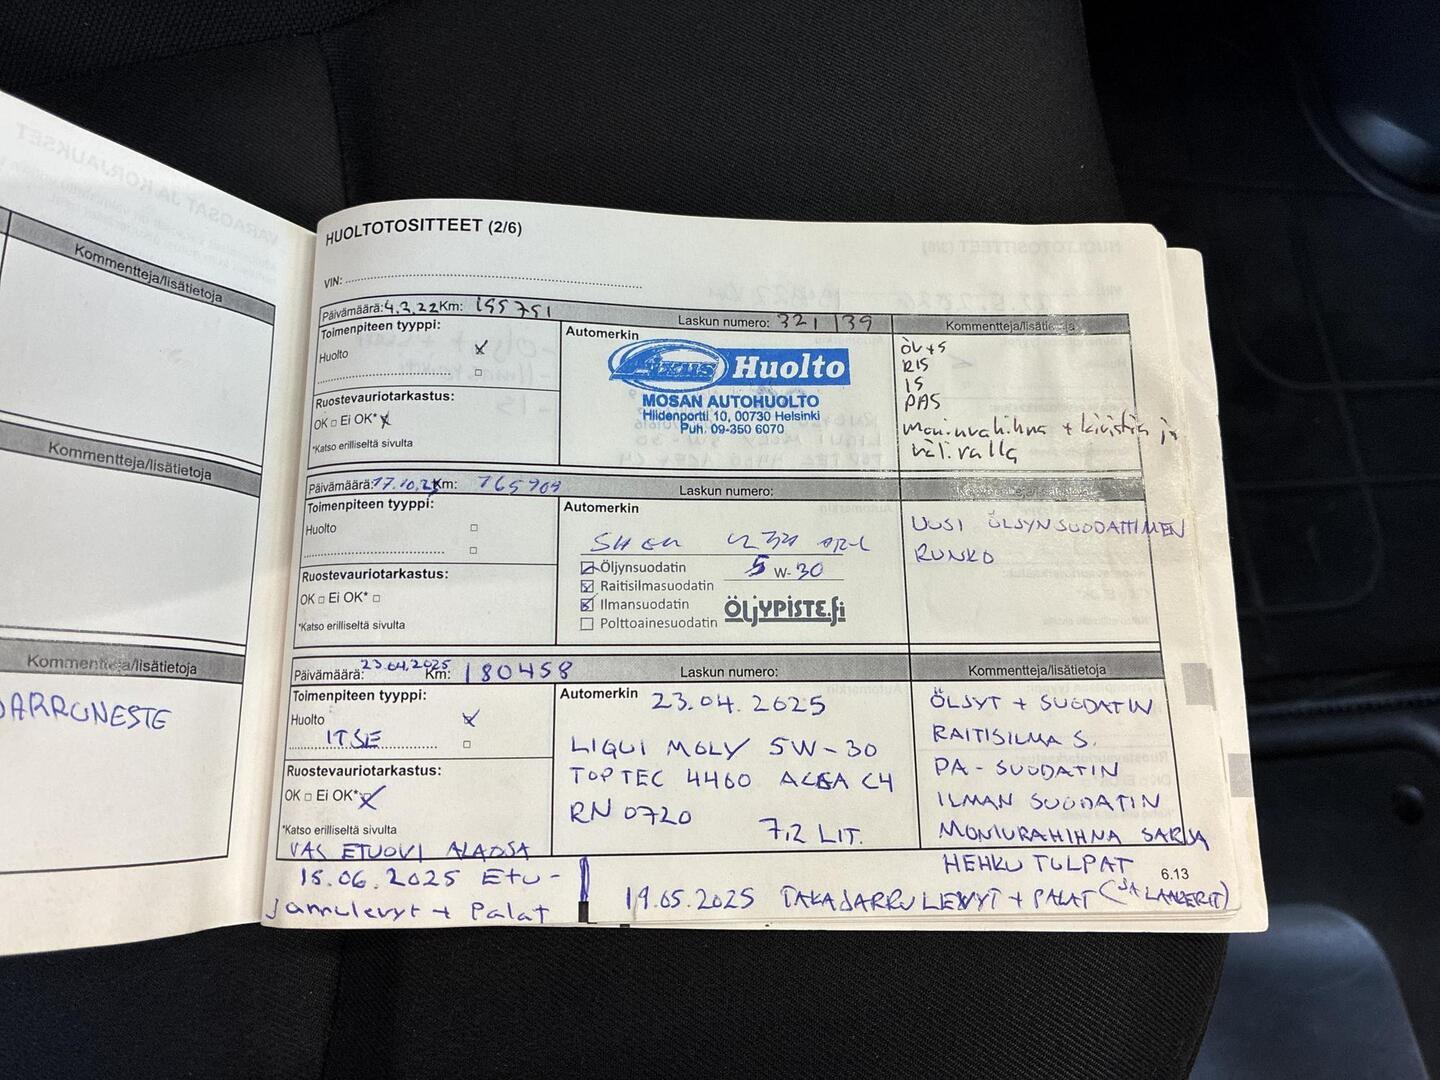 Kommentteja/lisätietoja
Kommentteja/lisätietoja
Kommentteja/lisätietoja
JARRUNESTE
HUOLTOTOSITTEET (2/6)
VIN:
Päivämäärä: 4.3.22 Km: 155751
Laskun numero: 321 139
Kommentteja/lisätietoja
Toimenpiteen tyyppi:
Huolto
Ruostevauriotarkastus:
OK □ Ei OK*
*Katso erilliseltä sivulta
Automerkin
Huolto
MOSAN AUTOHUOLTO
Hiidenportti 10, 00730 Helsinki
Puh. 09-350 6070
ÖL+S
RIS
IS
PAS
moniurahihna + kiristin ja
välirulla
Päivämäärä: 17.10.23 Km: 165909
Laskun numero:
Kommentteja/lisätietoja
Toimenpiteen tyyppi:
Huolto
Ruostevauriotarkastus:
OK □ Ei OK* □
*Katso erilliseltä sivulta
Automerkin
Öljynsuodatin
5 W-30
Raitisilmasuodatin
Ilmansuodatin
Polttoainesuodatin
ÖLJYPISTE.fi
UUSI ÖLJYNSUODATTIMEN
RUNKO
Päivämäärä: 23.04.2025 Km: 180458
Laskun numero:
Kommentteja/lisätietoja
Toimenpiteen tyyppi:
Huolto
ITSE
Ruostevauriotarkastus:
OK □ Ei OK*
*Katso erilliseltä sivulta
VAS ETUOVI ALAOSA
Automerkin 23.04.2025
LIQUI MOLY 5W-30
TOP TEC 4460 ACEA C4
RN 0720
7,2 LIT.
ÖLJYT + SUODATIN
RAITISILMA S.
PA-SUODATIN
ILMAN SUODATIN
MONIURAHIHNA SARJA
HEHKU TULPAT
6.13
15.06.2025 ETU-
jarrulevyt + Palat
19.05.2025 TAKAJARRU LEVYT + PALAT (JA LAAKERIT)